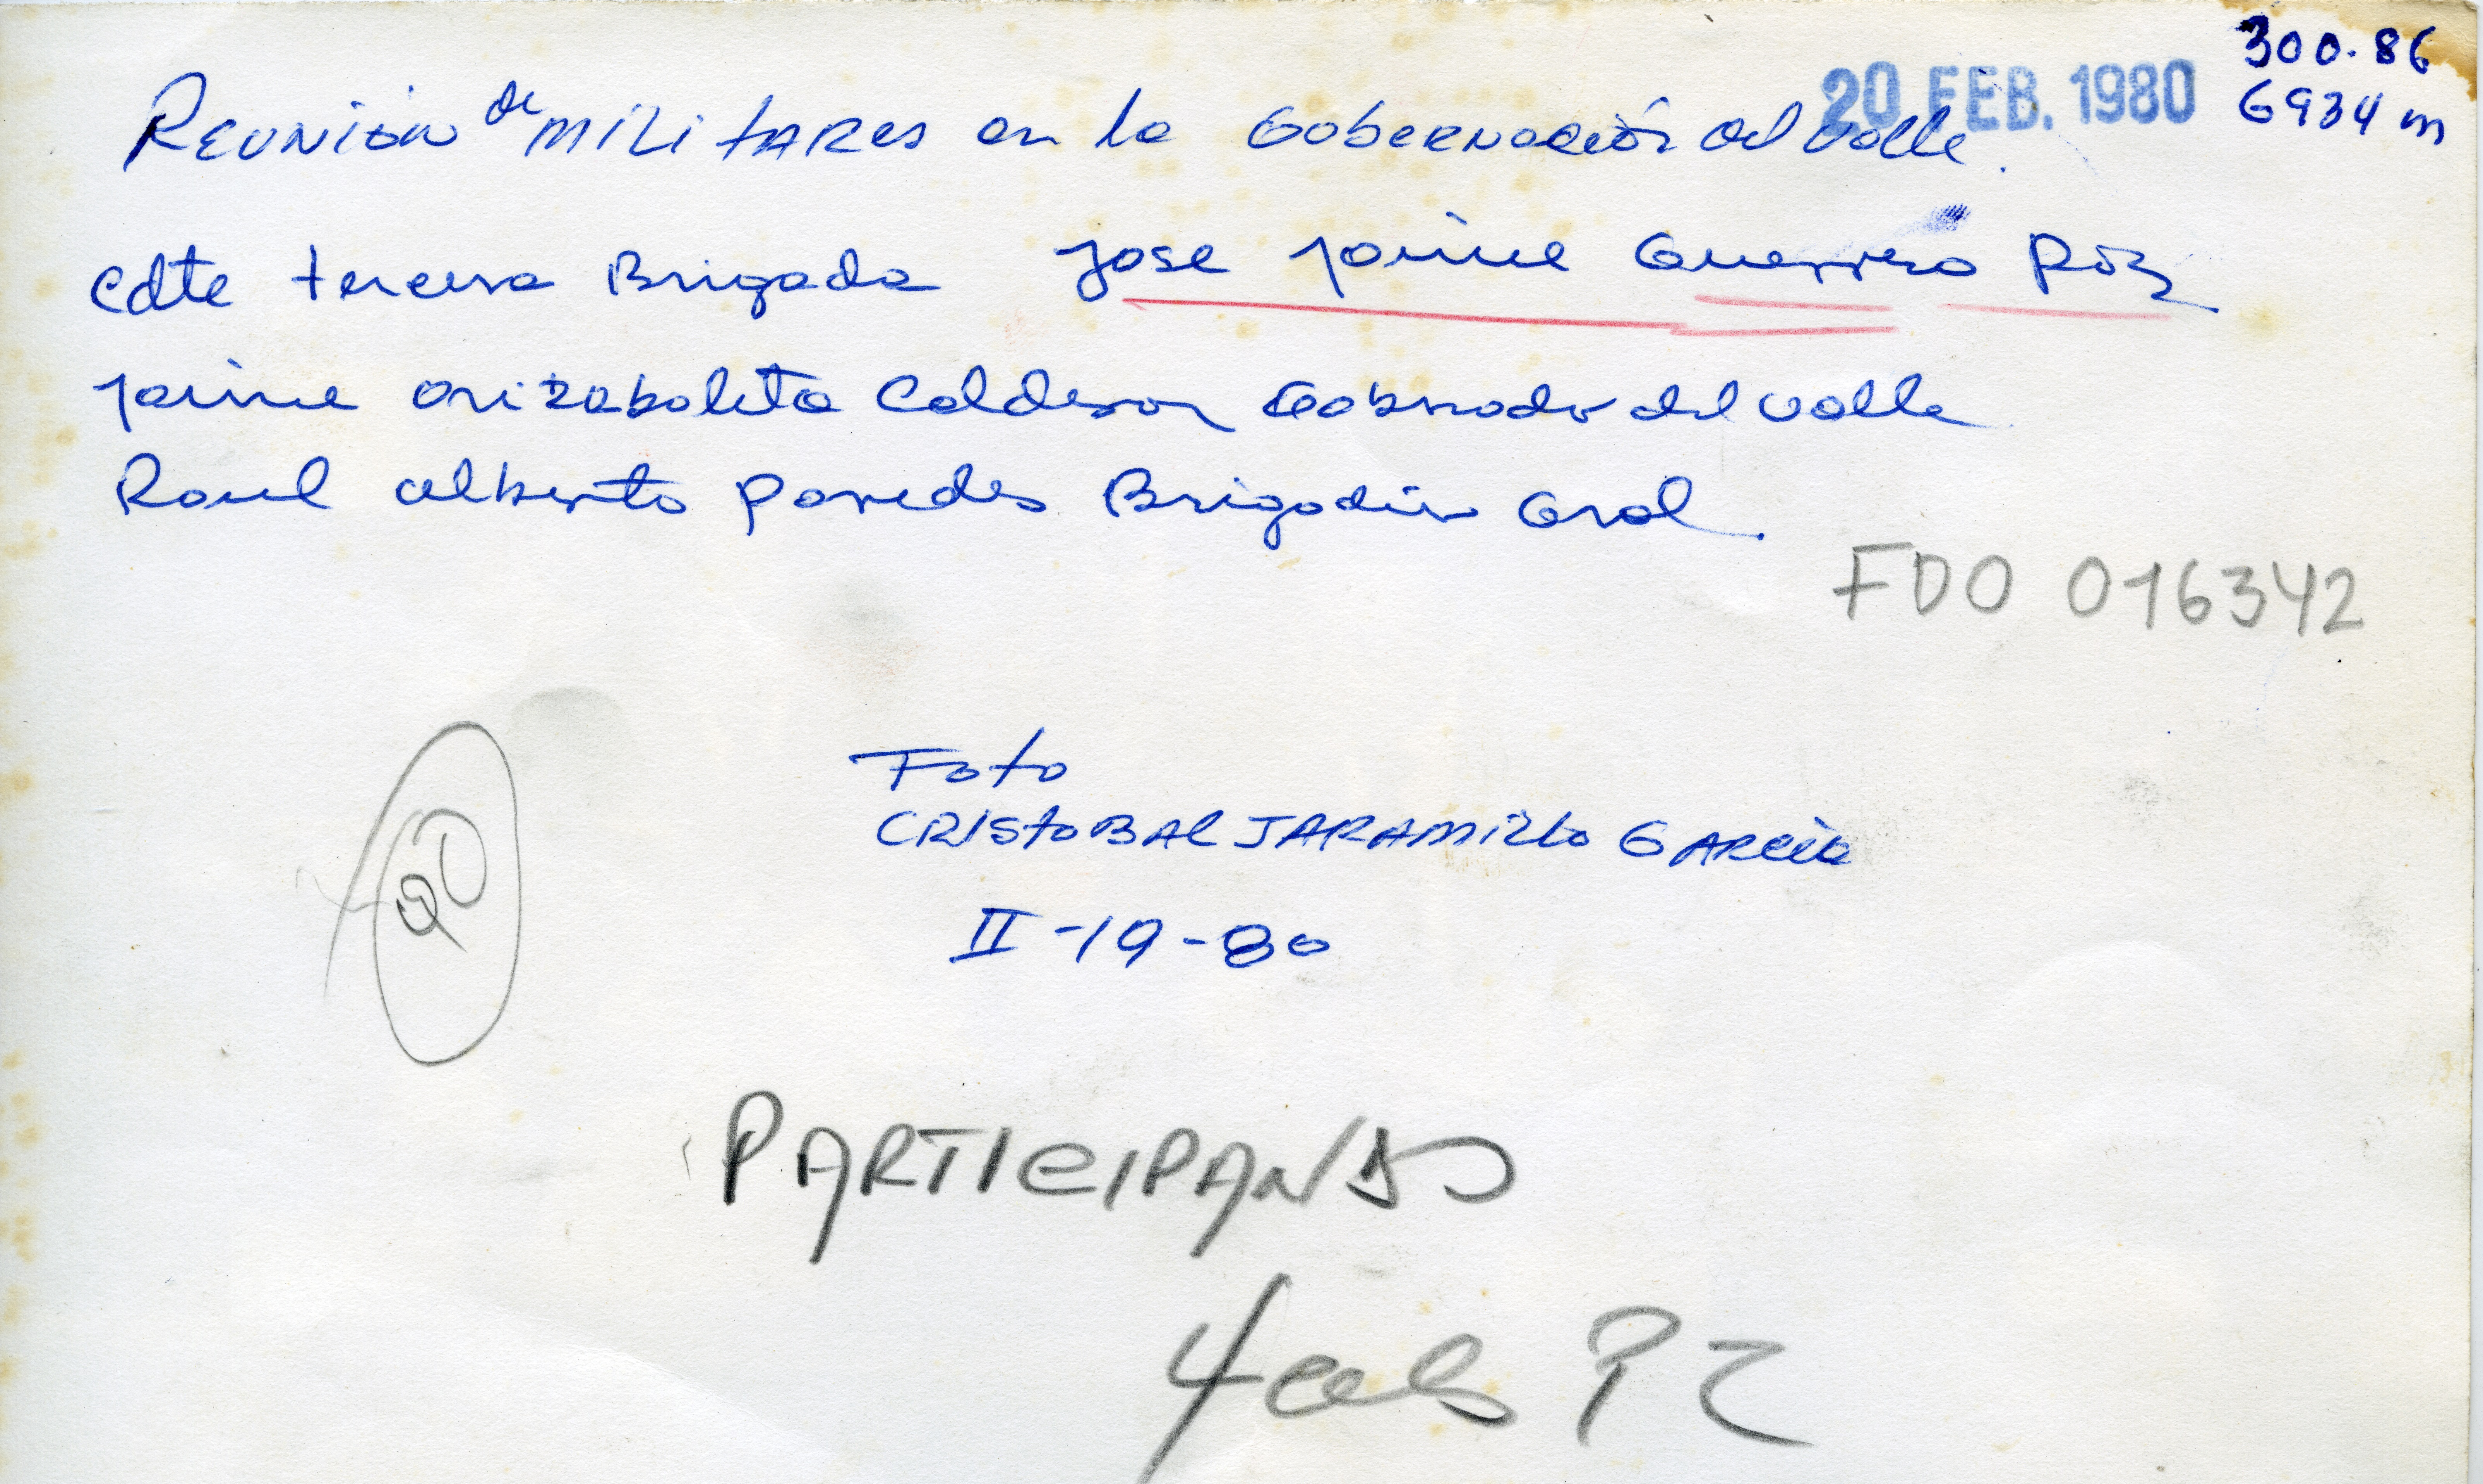 300.86
20 FEB. 1980 6934 m
Reunión de militares en la Gobernación del Valle.
Cdte tercera Brigada Jose Jaime Guerrero Poz
Jaime Arizabaleta Calderon Gobernador del Valle
Raul Alberto Paredes Brigadier Gral.
FDO 016342
Foto
CRISTOBAL JARAMILLO GARCÍA
II-19-80
PARTICIPANDO
4 cols P2